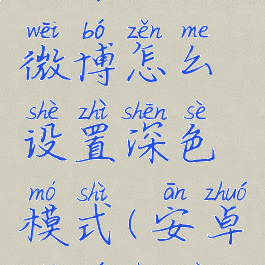 wēi bó zěn me
微博怎么
shè zhì shēn sè
设置深色
mó shì ān zhuó
模式(安卓